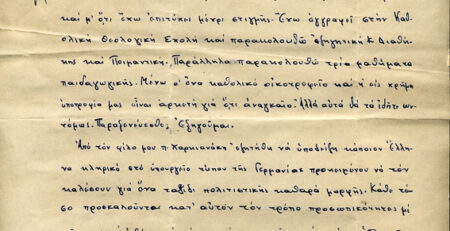 καί μ' ὅ,τι ἔχω ἐπιτύχει μέχρι στιγμῆς. Ἔχω ἐγγραφεῖ στήν Καθ
ολική Θεολογική Σχολή καί παρακολουθῶ ἐξηγητική Κ. Διαθή
κης καί Ποιμαντική. Παράλληλα παρακολουθῶ τρία μαθήματα
παιδαγωγικῆς. Μένω σ' ἕνα καθολικό οἰκοτροφεῖο καί ἡ εἰς χρῆμα
ὑποτροφία μας εἶναι ἀρκετή γιά ὅ,τι ἀναγκαῖο. Ἀλλά αὐτά θά τά ἰδῆτε συν
τόμως. Παραξενεύεσθε; Ἐξηγοῦμαι.
Ἀπό τόν φίλο μου π. Χαρκιανάκη ἐζητήθη νά ὑποδείξη κάποιον Ἕλλη
να κληρικό στό ὑπουργεῖο τύπου τῆς Γερμανίας προκειμένου νά τόν
καλέσουν γιά ἕνα ταξίδι πολιτιστικῆς καθαρά μορφῆς. Κάθε τό
σο προσκαλοῦνται κατ' αὐτόν τόν τρόπο προσωπικότητες μέ